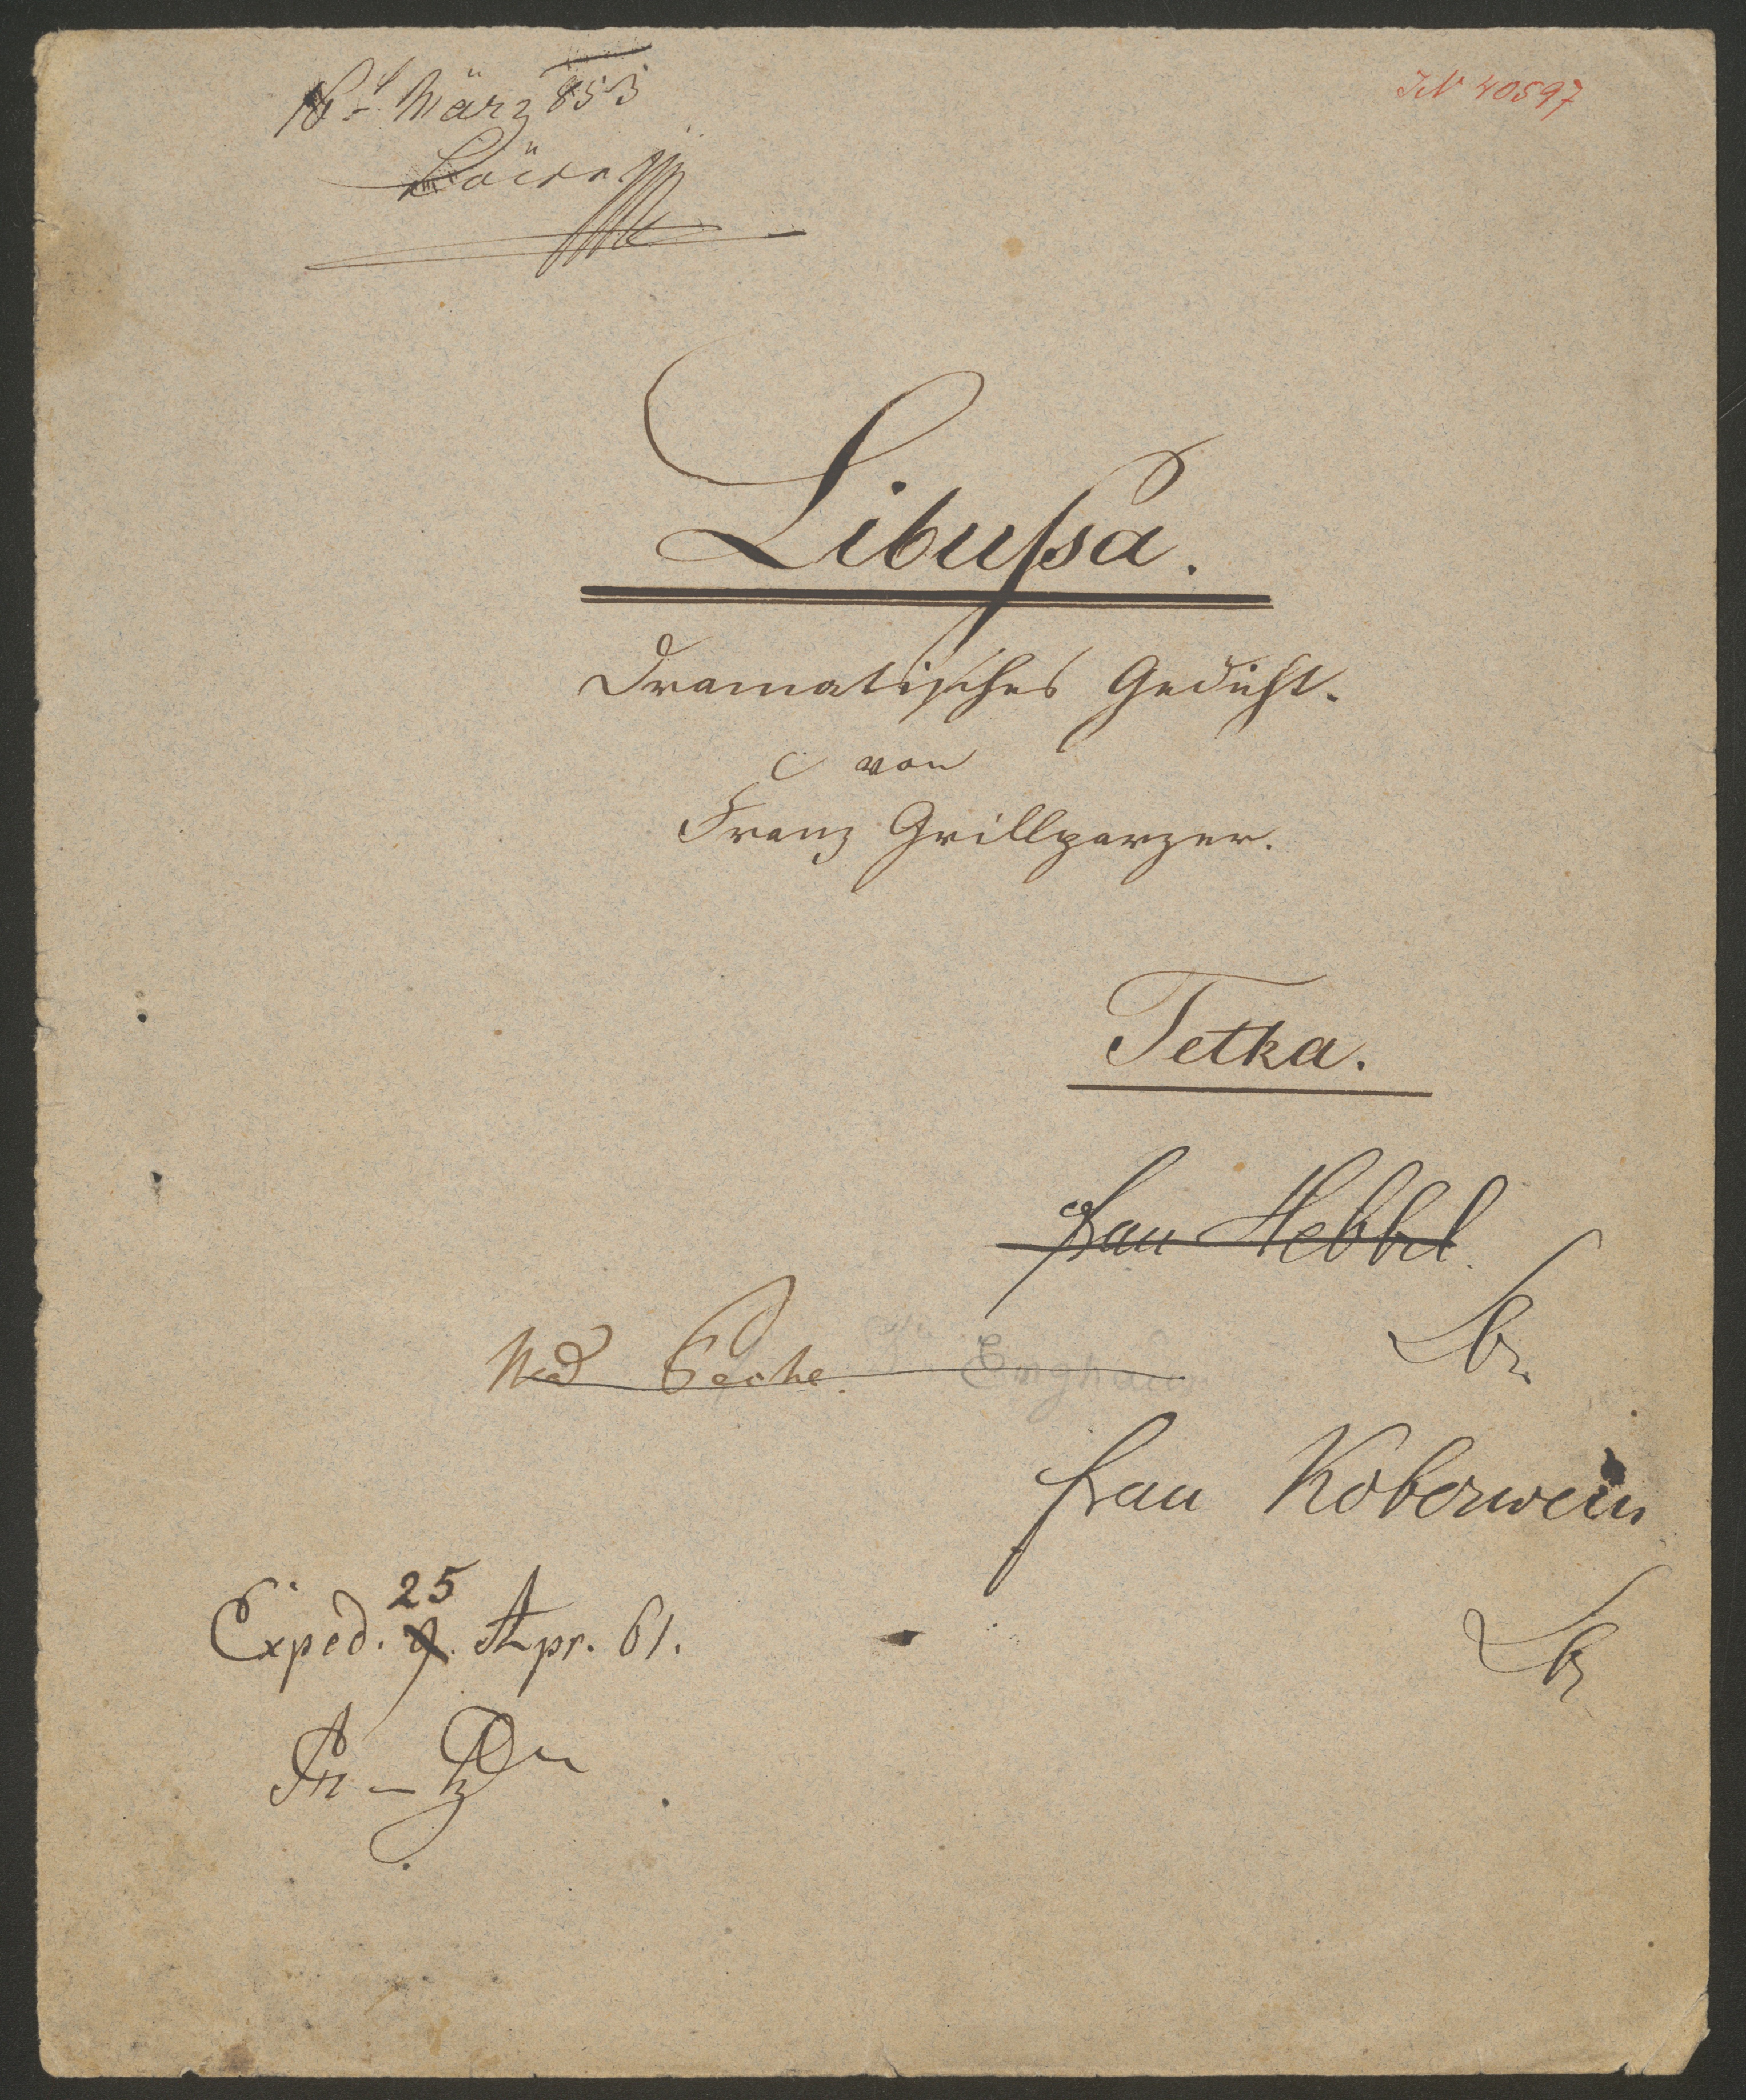 18t März 853
IN 40597
Libussa.
Dramatisches Gedicht.
von
Franz Grillparzer.
Tetka.
Frau Hebbel.
Mad Peche.
Enghaus
Frau Koberwein
25
Exped. 9. Apr. 61.